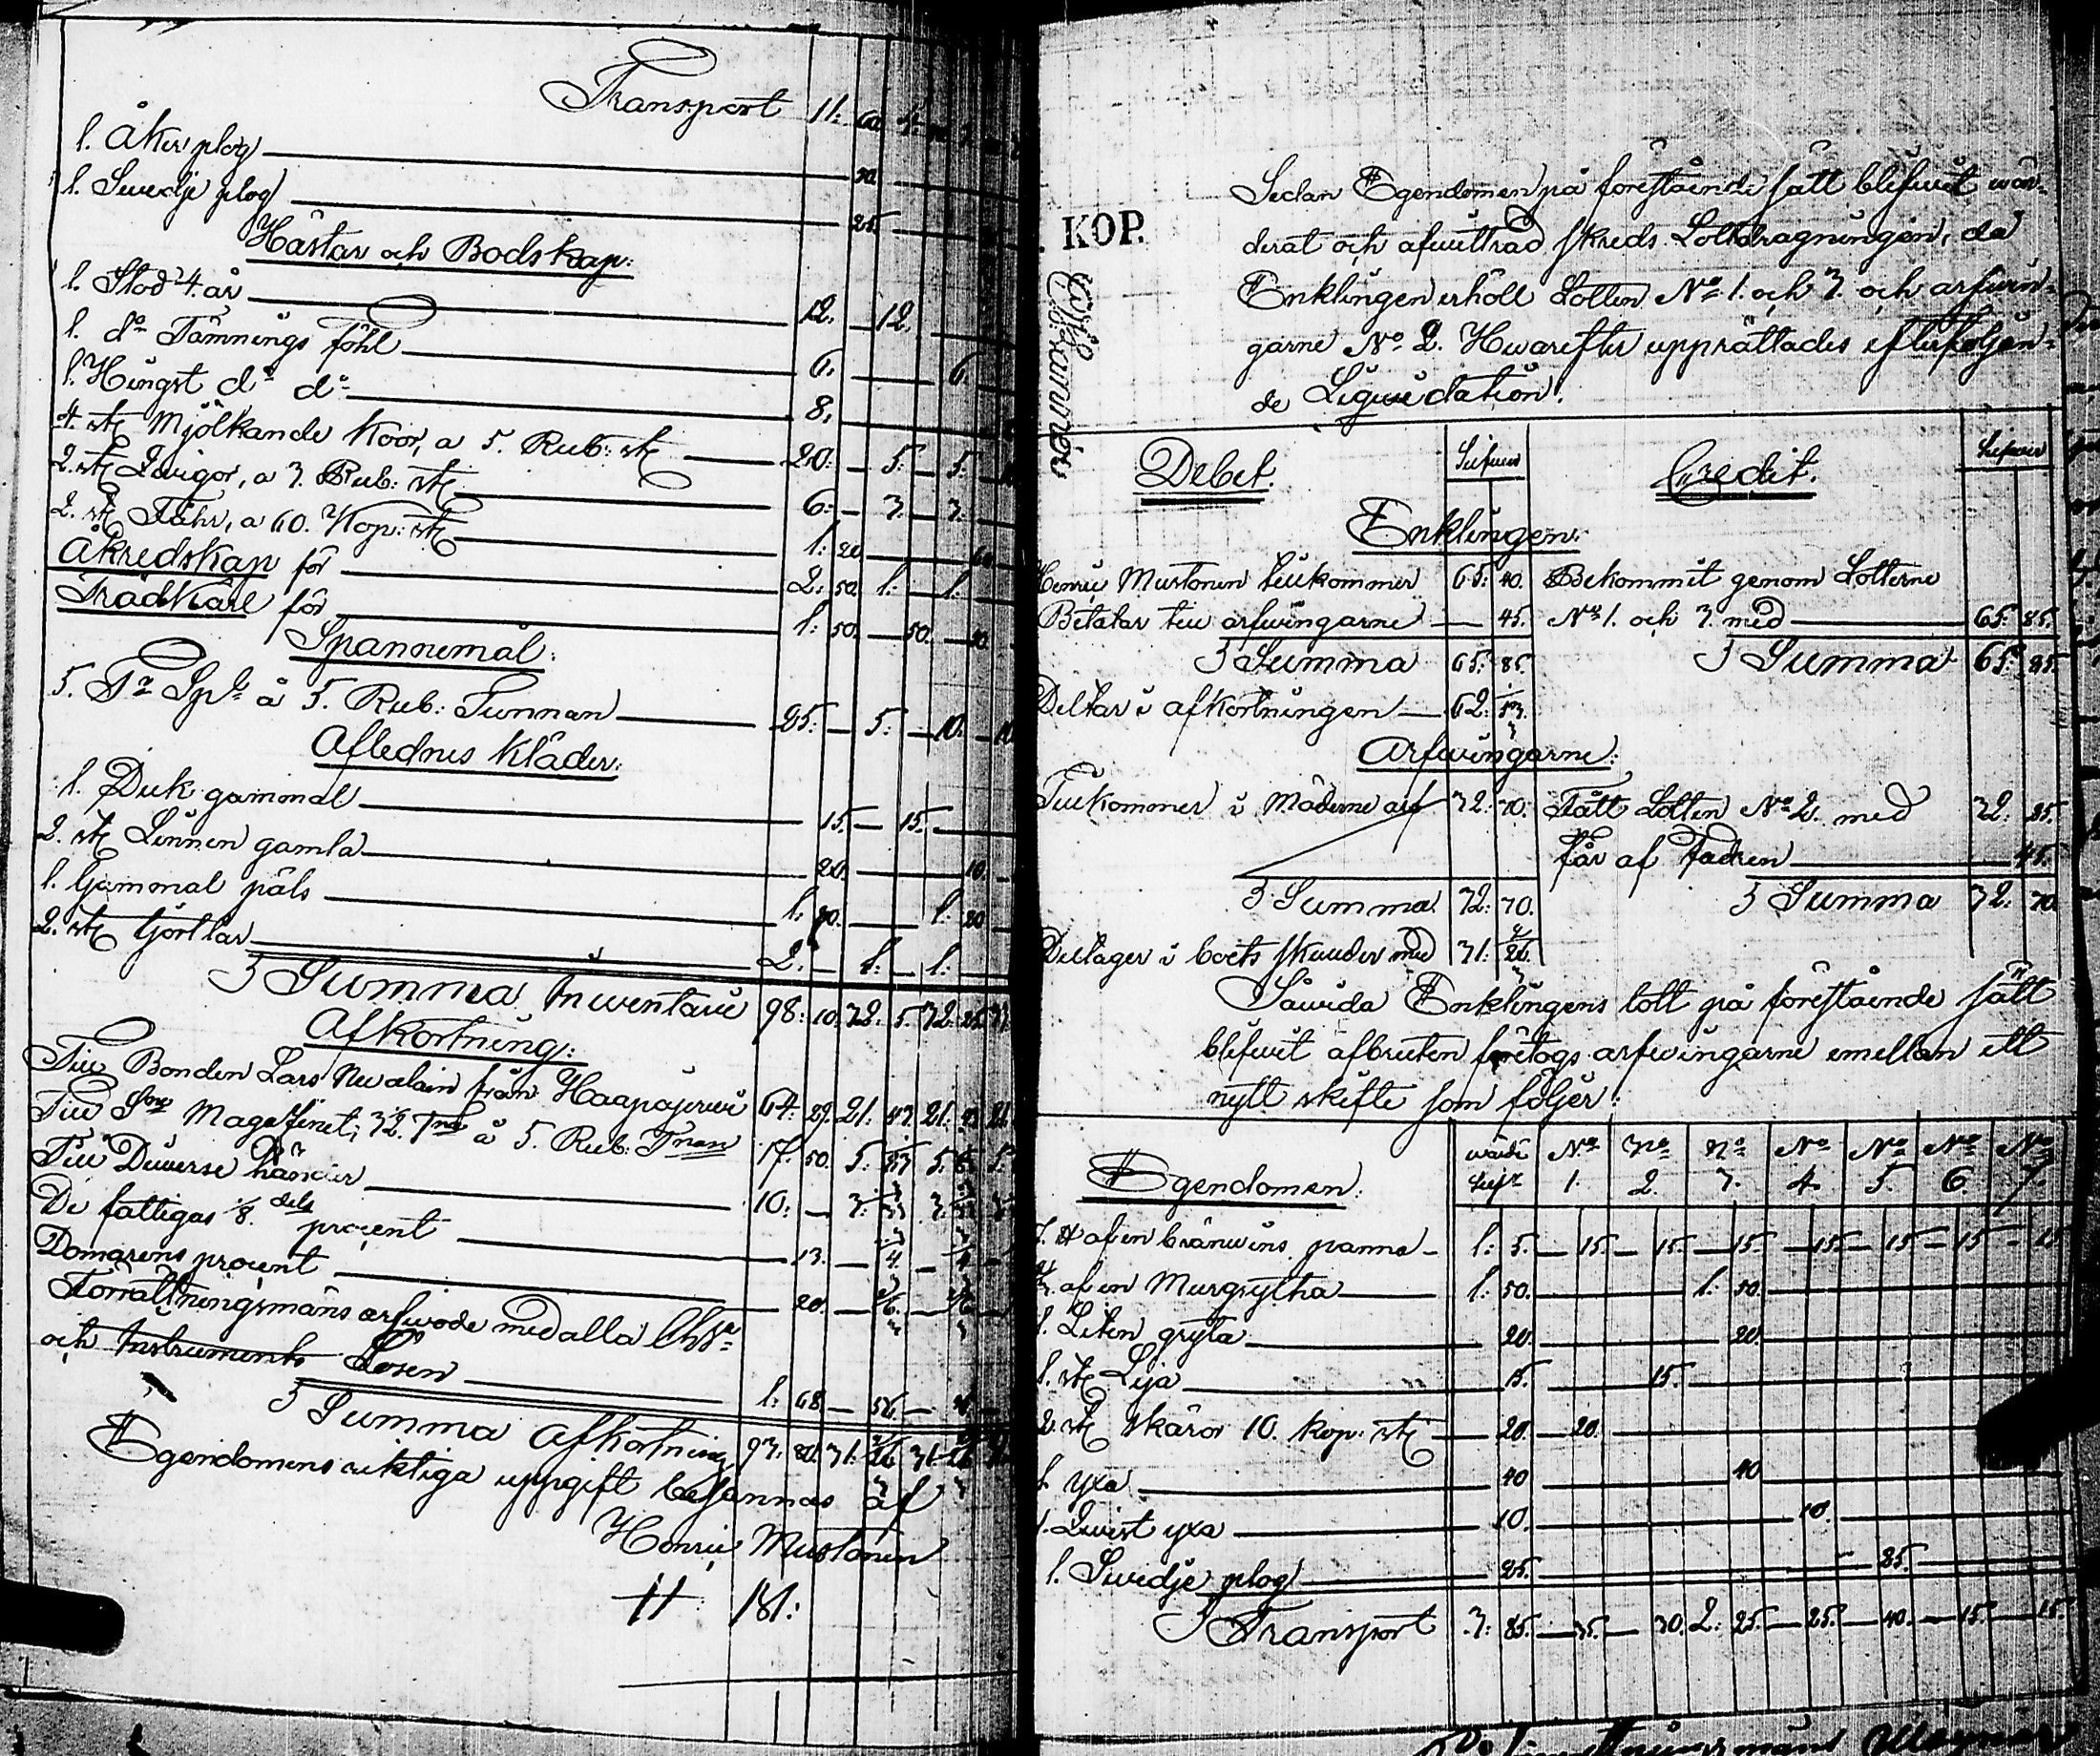 Transport 11: 60. 4:
1. Åker plog 50.
1. Swedje plog 25.
Hästar och Bodskap:
1. Stod 4. år 12. 12.
1. do Tämnings föhl 6. 6.
1. Hingst do do 8.
4. st Mjölkande Koor, a 5. Rub: st 20. 5. 5.
2. st Qwigor, a 3. Rub: st 6. 3. 3.
2. st Fåhr, a 60. Kop: st 1: 20 60
Åkredskap för 2: 50. 1: 1:
Trädkäril för 1: 50. 50. 50.
Spannemål:
5. Tr Spl a 5. Rub: Tunnan 25. 5. 10. 10
Aflednes Kläder:
1. Duk gammal 15. 15.
2. st Linnen gamla 20. 10.
1. Gammal päls 1: 20. 1: 20
2. st Kjortlar 2. 1: 1:
Summa Inventarie 98: 10. 32: 5. 32: 25. 33
Afkortning:
Till Bonden Lars Nevalain från Haapajerwi 64: 29. 21: 43. 21: 43 21
Till Sne Magasinet; 3½ Tnr å 5. Rub: Tnan 17: 50. 5: 83 5: 83 5:
Till Diverse händer 10: 3: 33 3: 33
De fattigas 1/8. dels procent 13. 4 4
Domarens procent 20. 6. 6
Förrättningsmäns arfwode med alla Chsr
och Instruments Lösen 1: 68 56. 56
Summa Afkortning 93: 80. 31: 26 31 26
Egendomens riktiga uppgift besannas af
Henric Mustonen
11 181:
KOP.
Sedan Egendomen på förestående sätt blifwit wär-
derat och afwittrad skreds Lottdragningen, då
Enklingen erhöll Lotten No 1. och 3. och arfwin-
garne No 2. Hwarefter upprättades efterföljan-
de Liqwidation.
Debet. Silfwer Credit. Silfwer
Enklingen:
Henric Mustonen tillkommer 65: 40. Bekommit genom Lotterne
Betalar till arfwingarne 45. No 1. och 3. med 65. 85.
Summa 65: 85. Summa 65: 85.
Deltar i afkortningen 62: 53.
Arfwingarne:
Tillkommer i Möderne arf 32: 70. Fått Lotten No 2. med 32: 25.
får af Fadren 45.
Summa 32: 70. Summa 32: 70
Deltager i boets skulder med 31: 26.
Såwida Enklingens lott på förestående sätt
blifwit afbruten företogs arfwingarne emellan ett
nytt skifte som följer:
Egendomen: wärde silfr No 1. No 2. No 3. No 4. No 5. No 6. No 7.
af en bränwins panna 1: 5. 15. 15. 15. 15. 15 15 15
af en Murgryta 1: 50. 1: 50.
1. Liten gryta 20. 20.
1. st Lija 15. 15.
2. st skäror 10. kop: st 20. 20.
1. yxa 40 40
1. Qwist yxa 10. 10
1. Swedje plog 25. 25.
Transport 3: 85. 35. 30. 2: 25. 25. 40. 15. 15